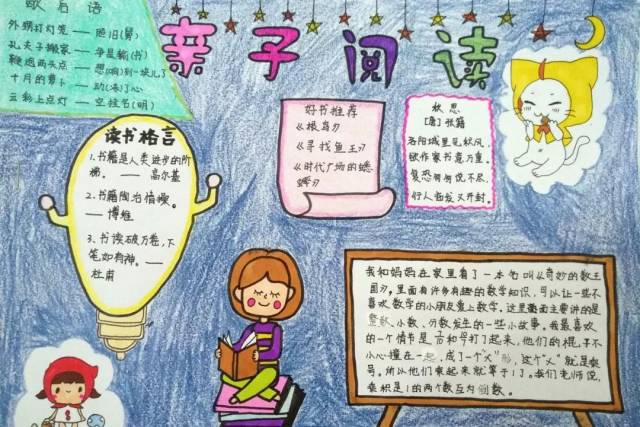 歇后语
外甥打灯笼 —— 照旧(舅)
孔夫子搬家 —— 净是输(书)
鞭炮两头点 —— 想(响)到一块儿了
十月的萝卜 —— 动(冻)了心
亲子阅读
读书格言
1.书籍是人类进步的阶
梯。 —— 高尔基
2.书籍陶冶情操。
3.书读破万卷,下
笔如有神。——
杜甫
好书推荐
《根鸟》
《寻找鱼王》
《时代广场的蟋
蟀》
秋思
[唐]张籍
洛阳城里见秋风,
欲作家书意万重。
复恐匆匆说不尽,
行人临发又开封。
我和妈妈在家里看了一本书叫《奇妙的数王
国》,里面有许多有趣的数学知识,可以让一些不
喜欢数学的小朋友爱上数学。这里面主要讲的是
整数、小数、分数发生的一些小故事。我最喜欢
的一个情节是
打起来,他们的棍子不
小心撞在一起,成了一个“×”形,这个“×”就是乘
号。所以他们乘起来就等于1了。我们老师说,
乘积是1的两个数互为倒数。